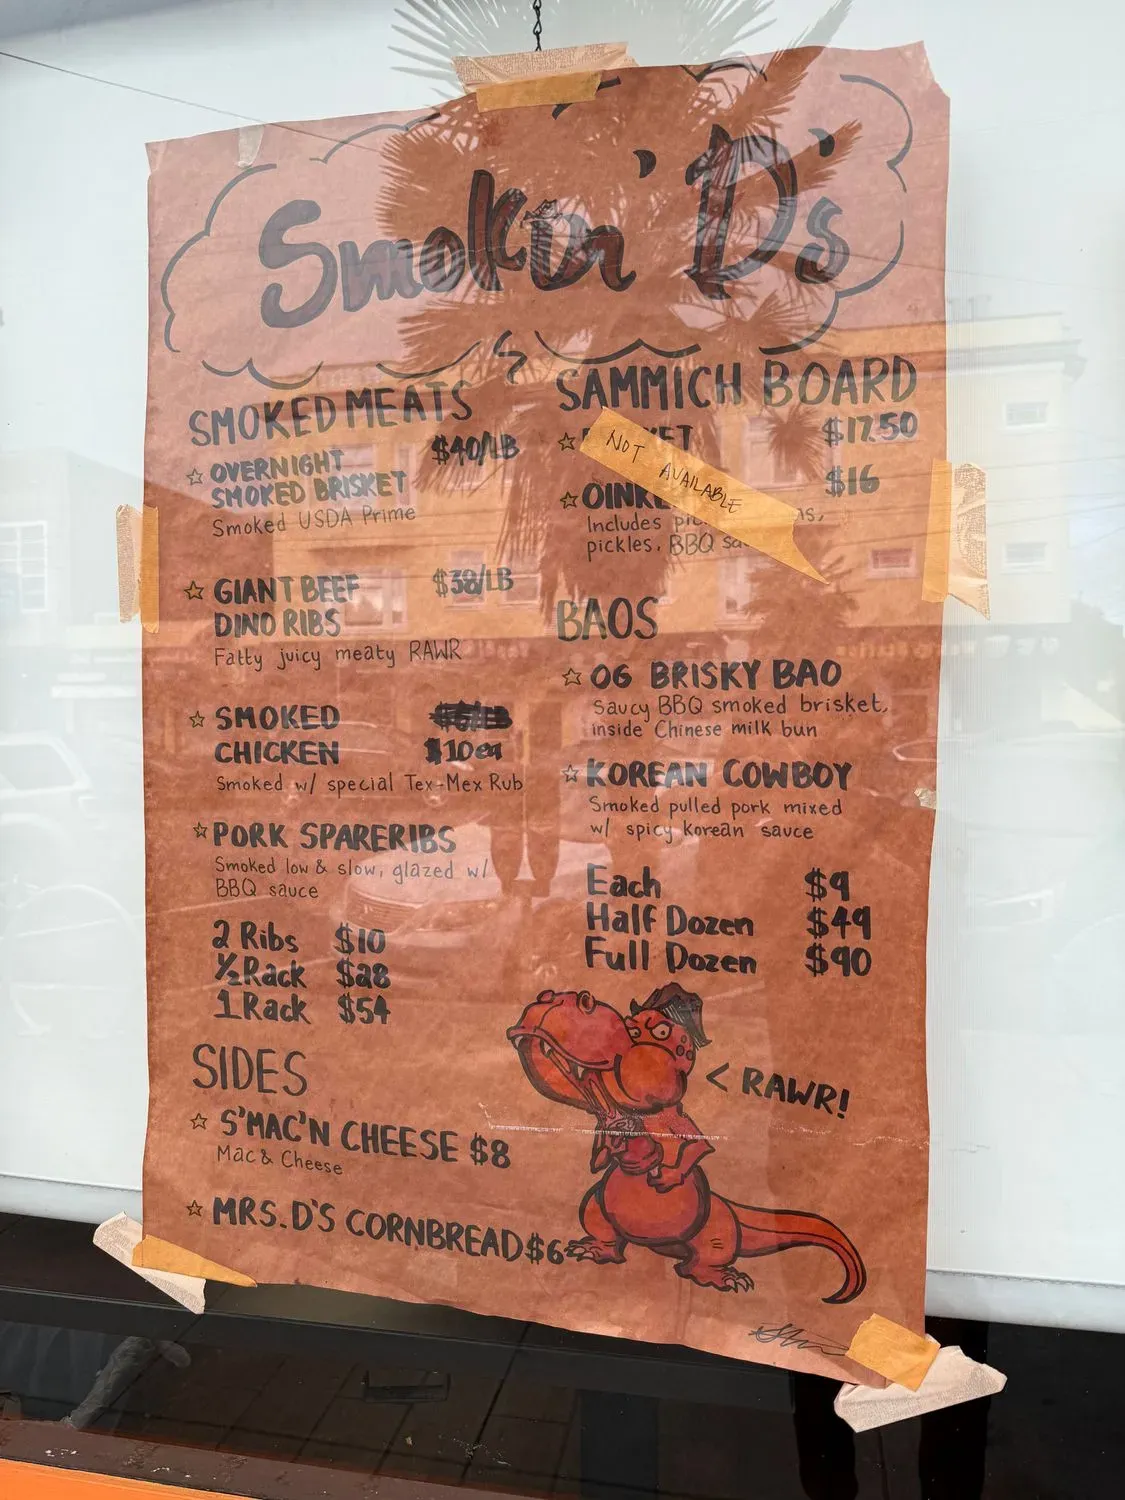 Smokin' D's
SMOKED MEATS
☆ OVERNIGHT $40/LB
SMOKED BRISKET
Smoked USDA Prime
☆ GIANT BEEF $38/LB
DINO RIBS
Fatty juicy meaty RAWR
☆ SMOKED
CHICKEN $10ea
Smoked w/ special Tex-Mex Rub
☆ PORK SPARERIBS
Smoked low & slow, glazed w/
BBQ sauce
2 Ribs $10
½ Rack $28
1 Rack $54
SIDES
☆ S'MAC'N CHEESE $8
Mac & Cheese
☆ MRS. D'S CORNBREAD $6
SAMMICH BOARD
☆ $17.50
NOT AVAILABLE
☆ $16
Includes
pickles, BBQ
BAOS
☆ OG BRISKY BAO
Saucy BBQ smoked brisket,
inside Chinese milk bun
☆ KOREAN COWBOY
Smoked pulled pork mixed
w/ spicy korean sauce
Each $9
Half Dozen $49
Full Dozen $90
< RAWR!